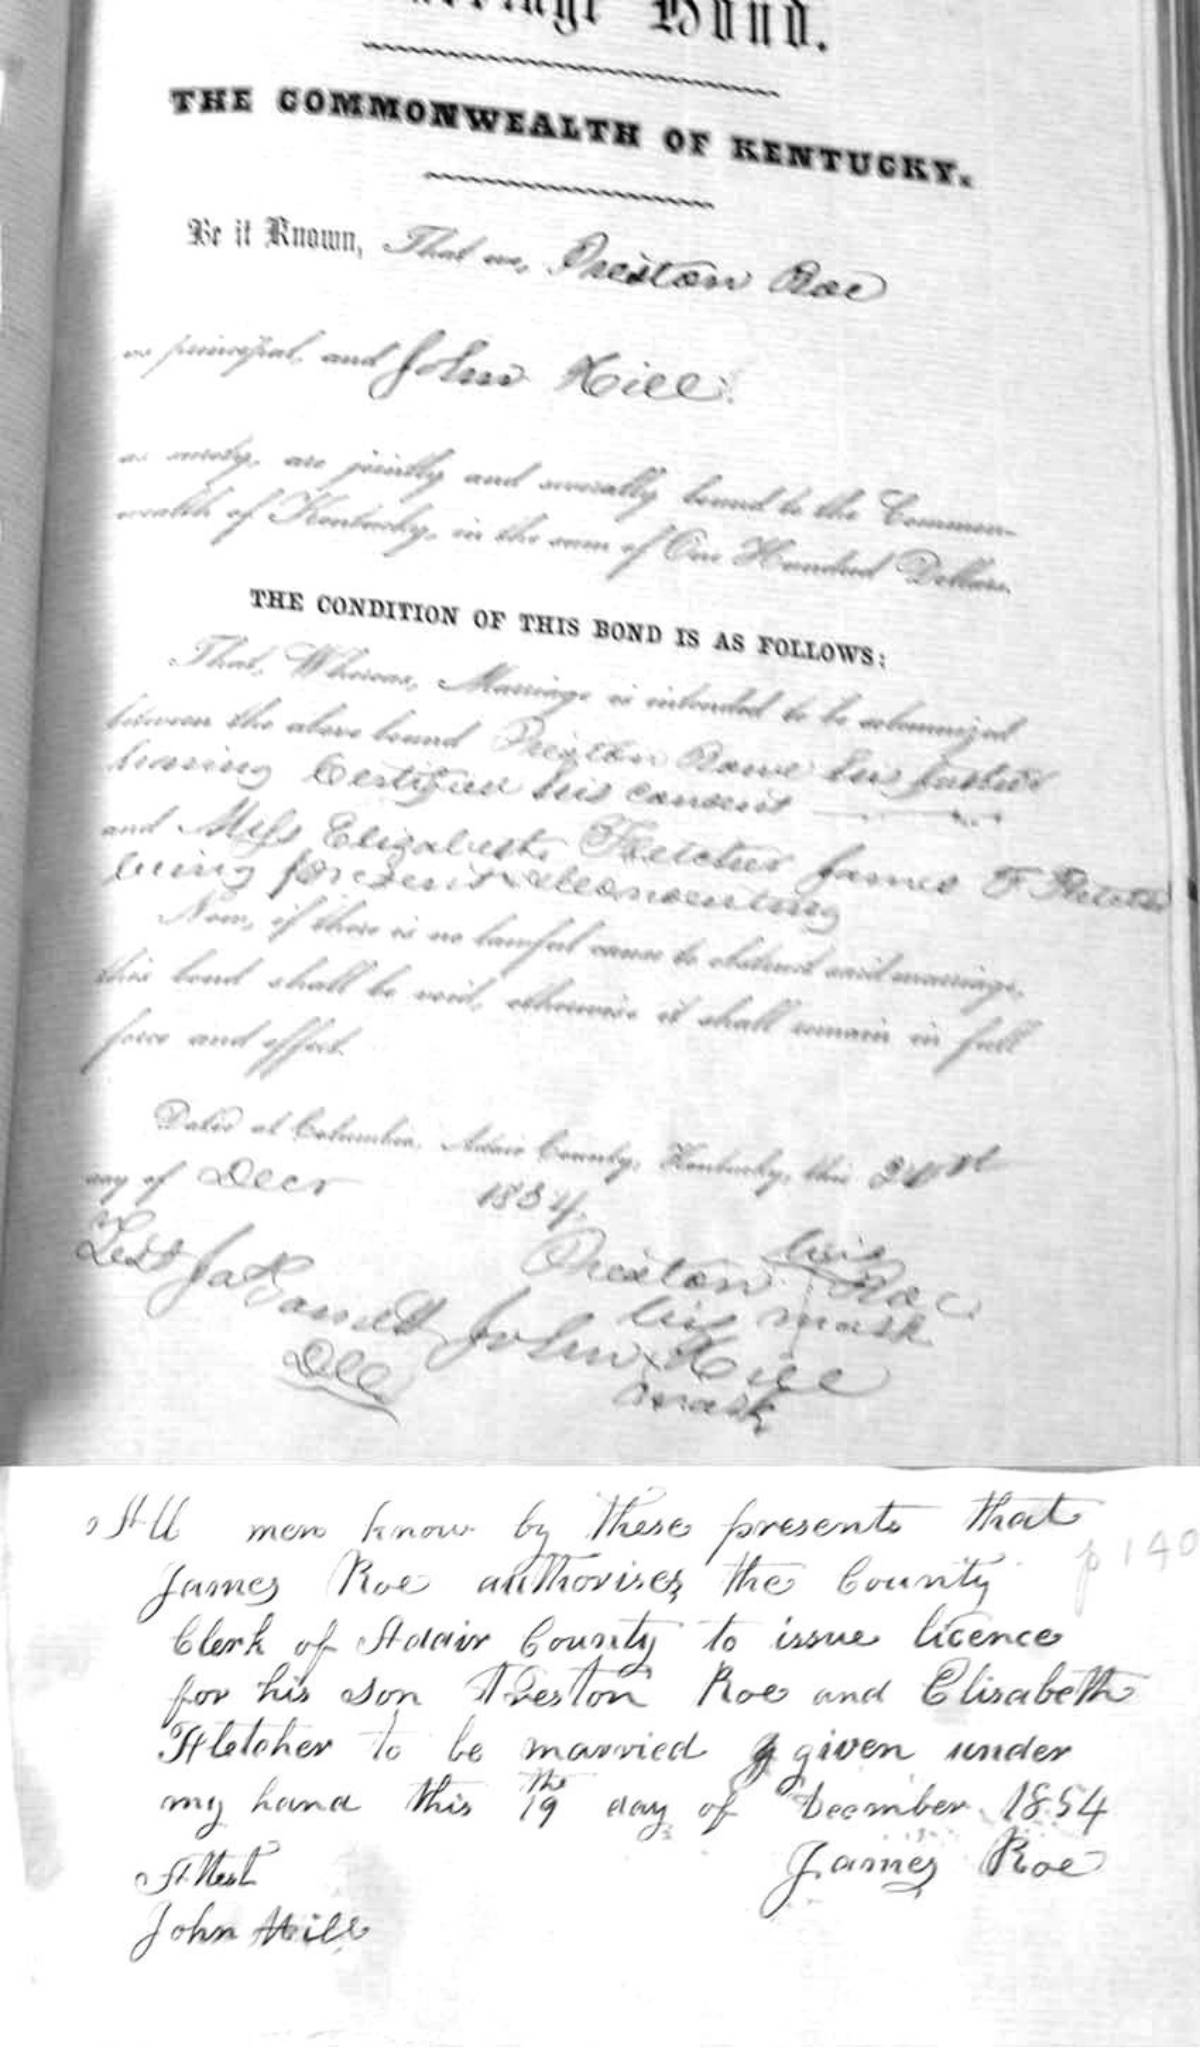 Marriage Bond.
THE COMMONWEALTH OF KENTUCKY.
Be it Known, That we, Preston Roe
as principal, and John Hill
as surety, are jointly and severally bound to the Common-
wealth of Kentucky, in the sum of One Hundred Dollars.
THE CONDITION OF THIS BOND IS AS FOLLOWS:
That, Whereas, Marriage is intended to be solemnized
between the above bound Preston Rowe his father
having Certifyed his consent
and Miss Elizabeth Fletcher James F Fletcher
being present & consenting
Now, if there is no lawful cause to obstruct said marriage,
this bond shall be void, otherwise it shall remain in full
force and effect.
Dated at Columbia, Adair County, Kentucky, this 21st
day of Decr 1854.
his
Preston Roe
mark
Test Ja Garnett
his
John x Hill
mark
p 140
All men know by these presents that
James Roe authorises the County
Clerk of Adair County to issue licence
for his son Preston Roe and Elisabeth
Fletcher to be married given under
my hand this 19 th day of December 1854
Attest James Roe
John Hill